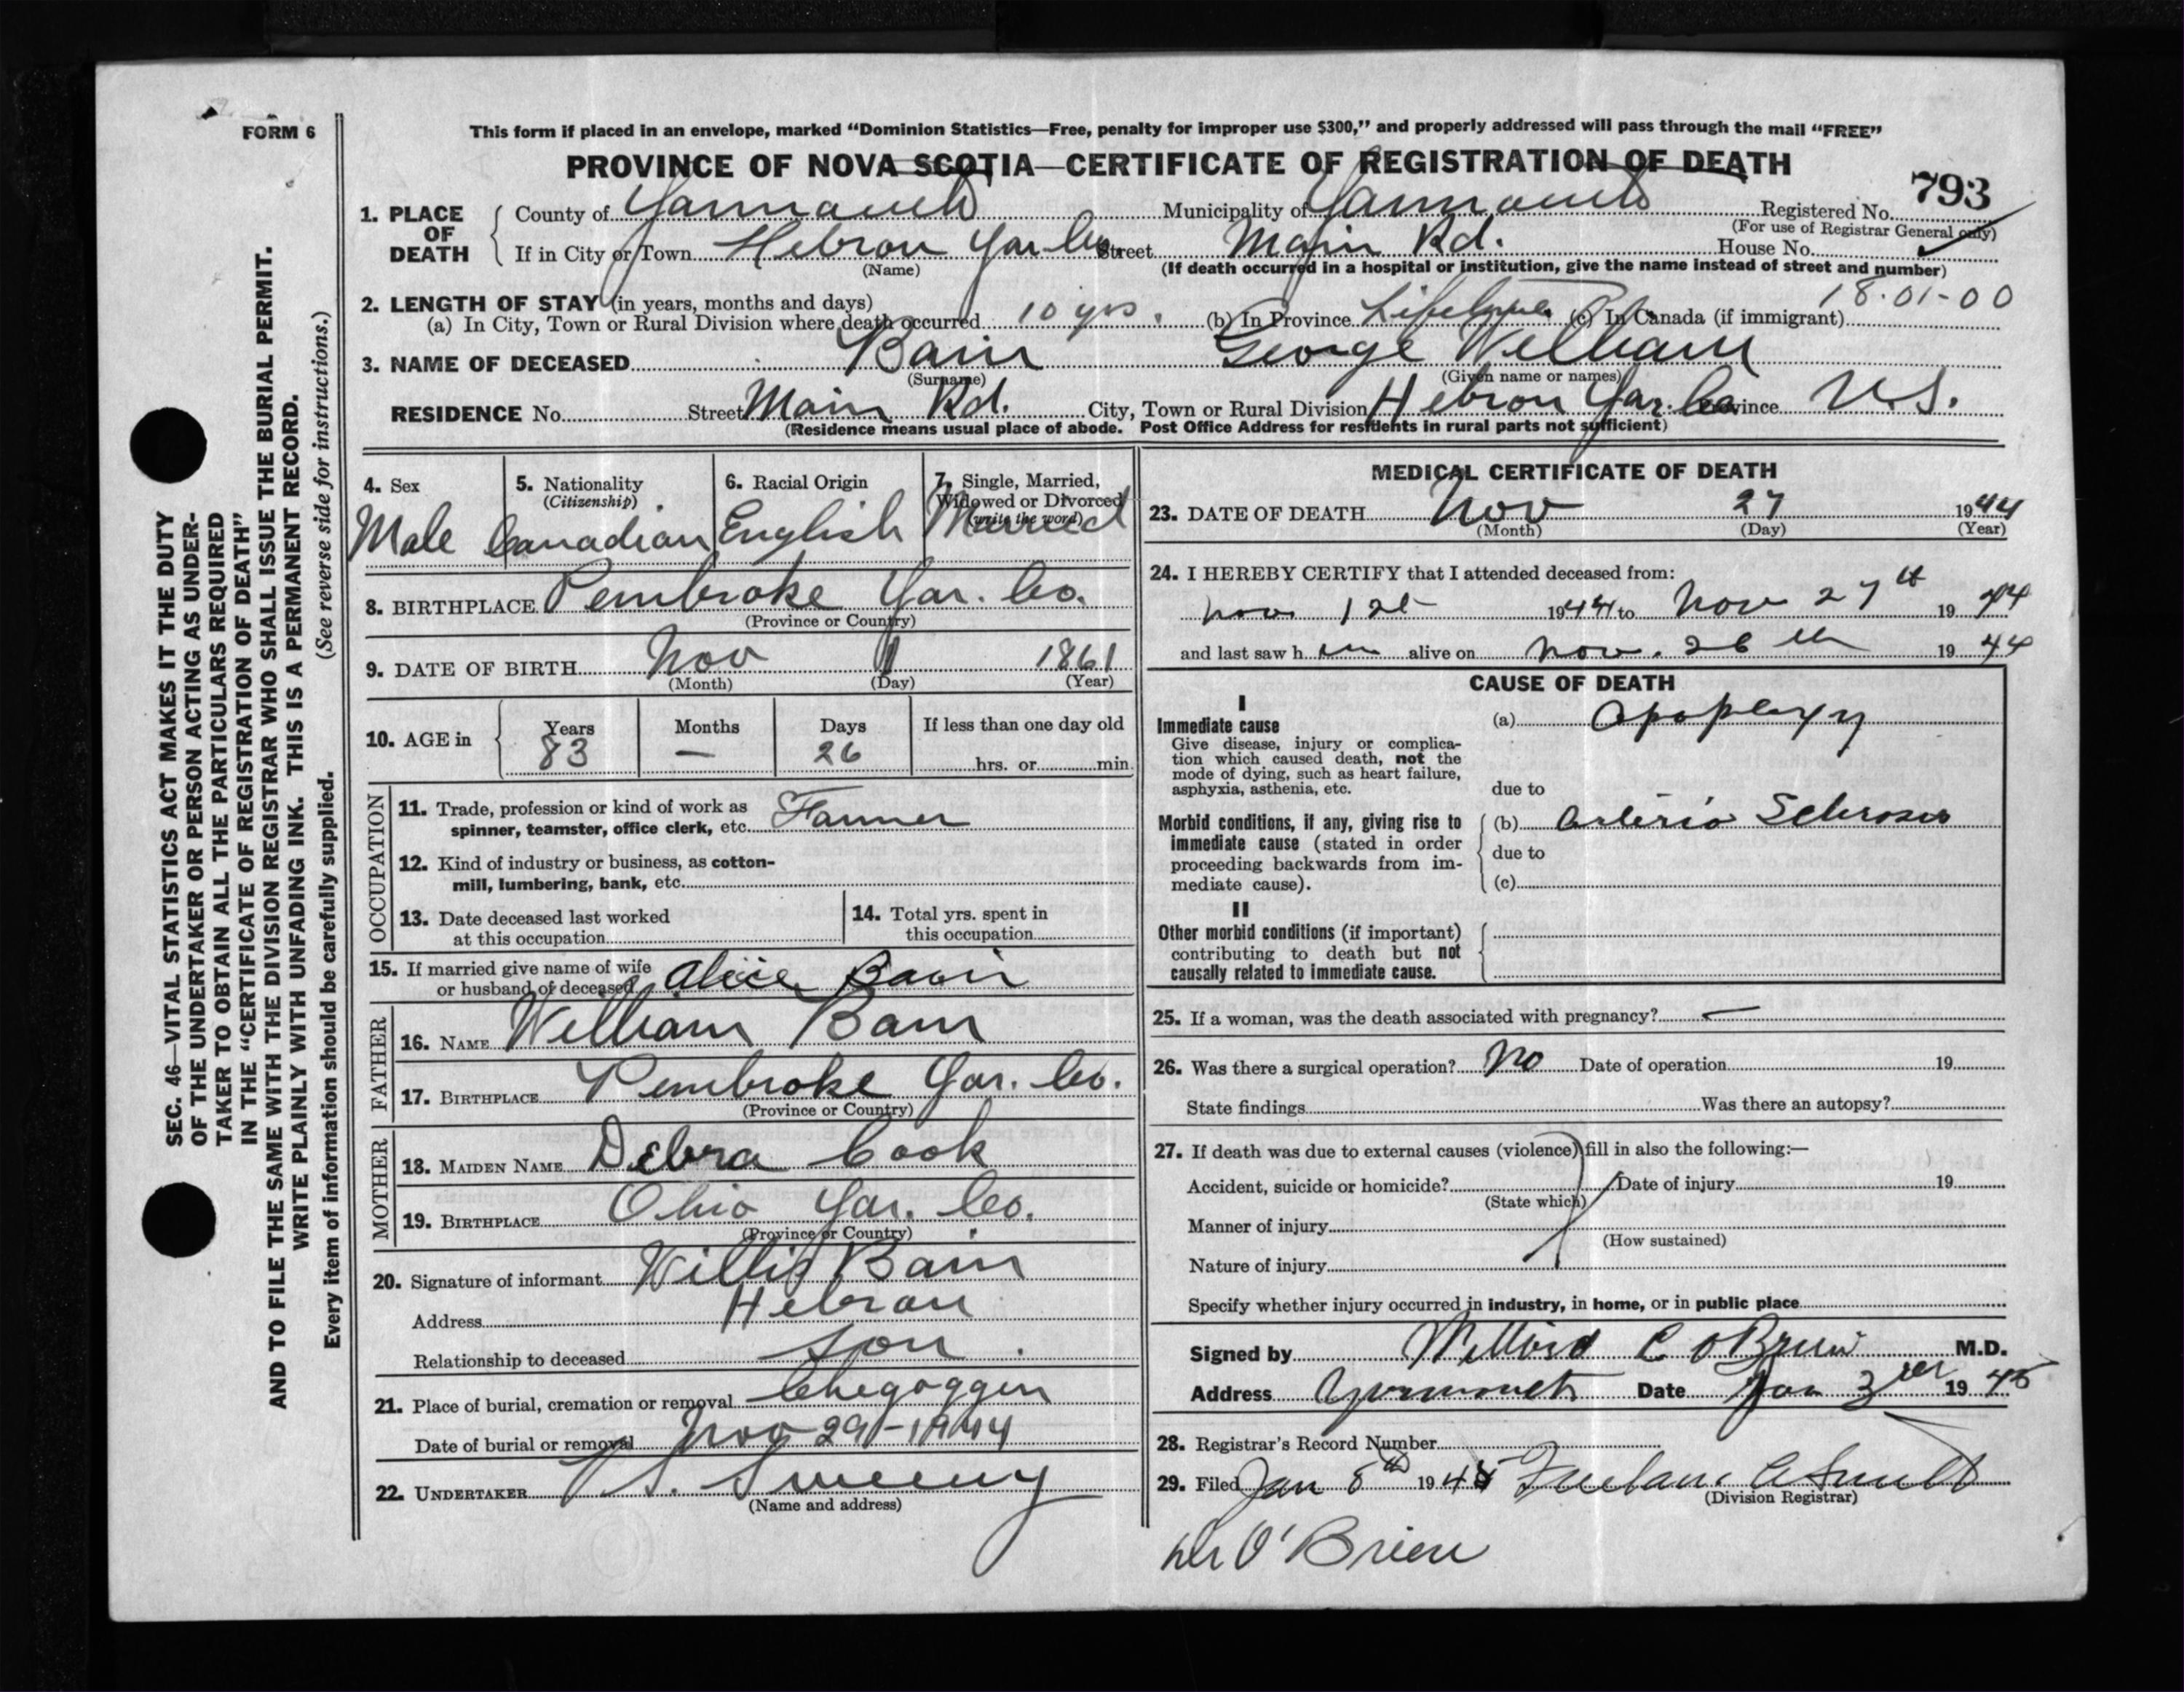 FORM 6
This form if placed in an envelope, marked “Dominion Statistics—Free, penalty for improper use $300,” and properly addressed will pass through the mail “FREE”
PROVINCE OF NOVA SCOTIA—CERTIFICATE OF REGISTRATION OF DEATH
793
1. PLACE OF DEATH County of Yarmouth Municipality of Yarmouth Registered No.
(For use of Registrar General only)
If in City or Town Hebron Yar Co. Street Main Rd. House No.
(Name) (If death occurred in a hospital or institution, give the name instead of street and number)
2. LENGTH OF STAY (in years, months and days) 18-01-00
(a) In City, Town or Rural Division where death occurred 10 yrs. (b) In Province Lifetime (c) In Canada (if immigrant)
3. NAME OF DECEASED Bain George William
(Surname) (Given name or names)
RESIDENCE No. Street Main Rd. City, Town or Rural Division Hebron Yar. Co. Province N.S.
(Residence means usual place of abode. Post Office Address for residents in rural parts not sufficient)
4. Sex
Male
5. Nationality
(Citizenship)
Canadian
6. Racial Origin
English
7. Single, Married,
Widowed or Divorced
(write the word)
Married
8. BIRTHPLACE Pembroke Yar. Co.
(Province or Country)
9. DATE OF BIRTH Nov 1 1861
(Month) (Day) (Year)
10. AGE in Years Months Days If less than one day old
83 — 26 hrs. or min.
OCCUPATION
11. Trade, profession or kind of work as
spinner, teamster, office clerk, etc. Farmer
12. Kind of industry or business, as cotton-
mill, lumbering, bank, etc.
13. Date deceased last worked
at this occupation
14. Total yrs. spent in
this occupation
15. If married give name of wife
or husband of deceased Alice Bain
FATHER
16. NAME William Bain
17. BIRTHPLACE Pembroke Yar. Co.
(Province or Country)
MOTHER
18. MAIDEN NAME Debra Cook
19. BIRTHPLACE Ohio Yar. Co.
(Province or Country)
20. Signature of informant Willis Bain
Address Hebron
Relationship to deceased Son.
21. Place of burial, cremation or removal Chegoggin
Date of burial or removal Nov 29-1944
22. UNDERTAKER V. S. Sweeny
(Name and address)
MEDICAL CERTIFICATE OF DEATH
23. DATE OF DEATH Nov 27 1944
(Month) (Day) (Year)
24. I HEREBY CERTIFY that I attended deceased from:
Nov 1st 1944 to Nov 27th 1944
and last saw him alive on Nov. 26th 1944
CAUSE OF DEATH
I
Immediate cause
Give disease, injury or complica-
tion which caused death, not the
mode of dying, such as heart failure,
asphyxia, asthenia, etc.
(a) Apoplexy
due to
Morbid conditions, if any, giving rise to
immediate cause (stated in order
proceeding backwards from im-
mediate cause).
(b) Arterio Sclerosis
due to
(c)
II
Other morbid conditions (if important)
contributing to death but not
causally related to immediate cause.
25. If a woman, was the death associated with pregnancy? —
26. Was there a surgical operation? No Date of operation 19
State findings Was there an autopsy?
27. If death was due to external causes (violence) fill in also the following:—
Accident, suicide or homicide? Date of injury 19
(State which)
Manner of injury
(How sustained)
Nature of injury
Specify whether injury occurred in industry, in home, or in public place
Signed by C O'Brien M.D.
Address Yarmouth Date Jan 3rd 1945
28. Registrar's Record Number
29. Filed Jan 8th 1945
(Division Registrar)
Dr O'Brien
SEC. 46—VITAL STATISTICS ACT MAKES IT THE DUTY
OF THE UNDERTAKER OR PERSON ACTING AS UNDER-
TAKER TO OBTAIN ALL THE PARTICULARS REQUIRED
IN THE “CERTIFICATE OF REGISTRATION OF DEATH”
AND TO FILE THE SAME WITH THE DIVISION REGISTRAR WHO SHALL ISSUE THE BURIAL PERMIT.
WRITE PLAINLY WITH UNFADING INK. THIS IS A PERMANENT RECORD.
Every item of information should be carefully supplied. (See reverse side for instructions.)